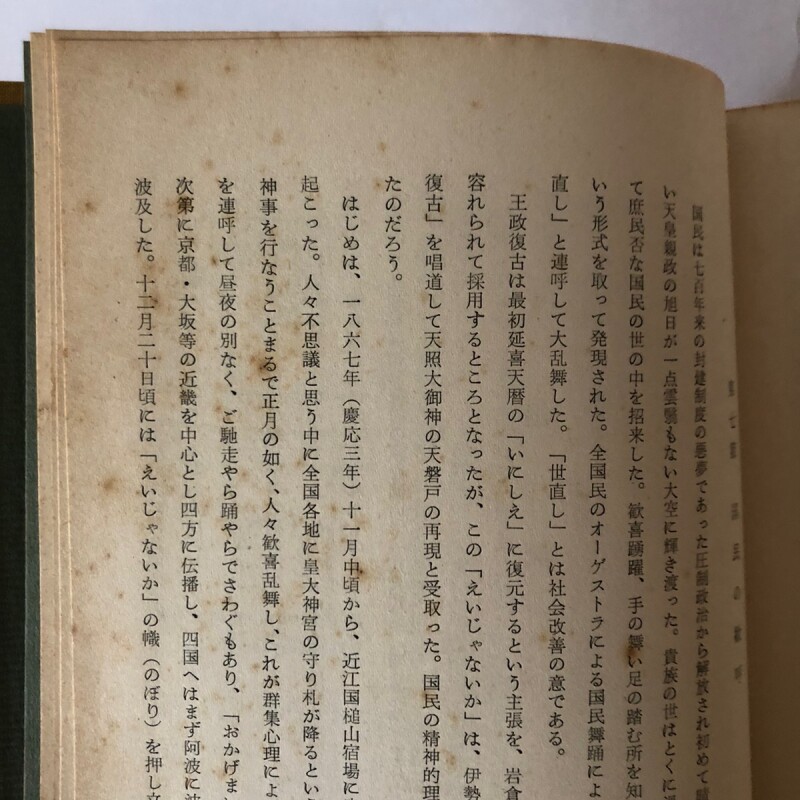 国民は七百年来の封建制度の悪夢であった圧制政治から解放され初めて
い天皇親政の旭日が一点雲翳もない大空に輝き渡った。貴族の世はとくに
て庶民否な国民の世の中を招来した。歓喜踊躍、手の舞い足の踏む所を知
いう形式を取って発現された。全国民のオーゲストラによる国民舞踊によ
直し」と連呼して大乱舞した。「世直し」とは社会改善の意である。
王政復古は最初延喜天暦の「いにしえ」に復元するという主張を、岩倉
容れられて採用するところとなったが、この「えいじゃないか」は、伊勢
復古」を唱道して天照大御神の天磐戸の再現と受取った。国民の精神的理
たのだろう。
はじめは、一八六七年（慶応三年）十一月中頃から、近江国槌山宿場に
起こった。人々不思議と思う中に全国各地に皇大神宮の守り札が降るとい
神事を行なうことまるで正月の如く、人々歓喜乱舞し、これが群集心理によ
を連呼して昼夜の別なく、ご馳走やら踊やらでさわぐもあり、「おかげま
次第に京都・大坂等の近畿を中心とし四方に伝播し、四国へはまず阿波に
波及した。十二月二十日頃には「えいじゃないか」の幟（のぼり）を押し